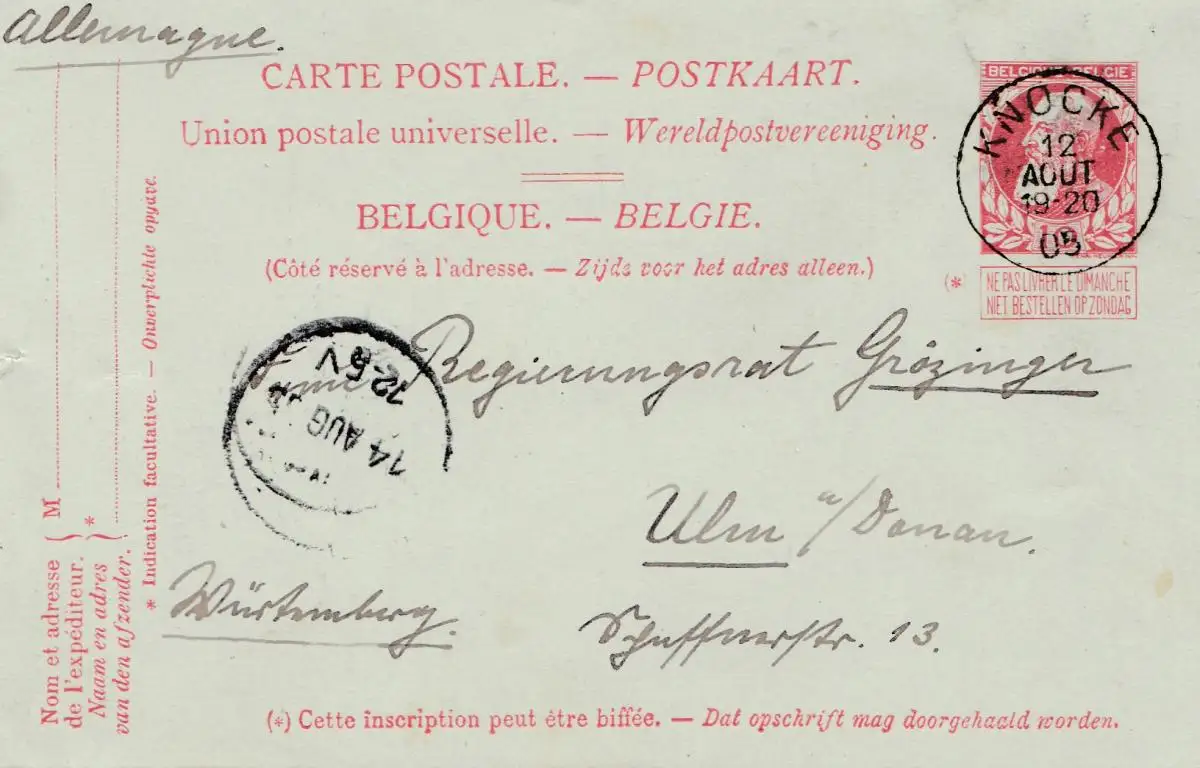 Allemagne.
CARTE POSTALE. — POSTKAART.
Union postale universelle. — Wereldpostvereeniging.
BELGIQUE. — BELGIE.
(Côté réservé à l'adresse. — Zijde voor het adres alleen.)
BELGIQUE BELGIE
KNOCKE
12
AOUT
19-20
05
(*) NE PAS LIVRER LE DIMANCHE
NIET BESTELLEN OP ZONDAG
14 AUG
12-5 V
Regierungsrat Grözinger
Ulm a/Donau.
Württemberg.
Schaffnerstr. 13.
M
Nom et adresse
de l'expéditeur.
Naam en adres
van den afzender.
*
* Indication facultative. — Onverplichte opgave.
(*) Cette inscription peut être biffée. — Dat opschrift mag doorgehaald worden.